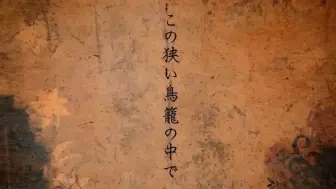 この狭い鳥籠の中で